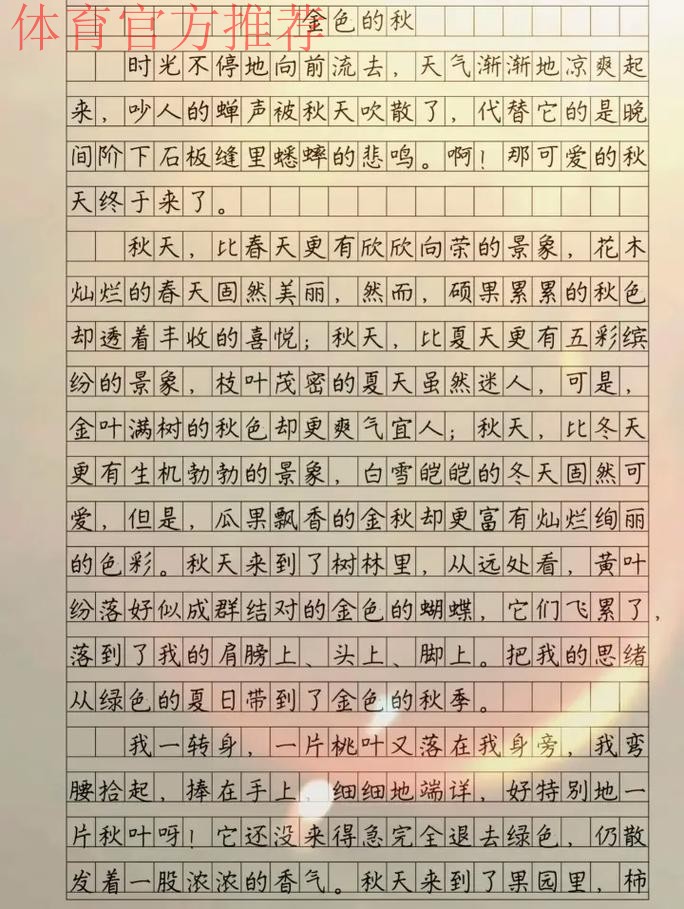 体育官方推荐
金色的秋
时光不停地向前流去，天气渐渐地凉爽起
来，吵人的蝉声被秋天吹散了，代替它的是晚
间阶下石板缝里蟋蟀的悲鸣。啊！那可爱的秋
天终于来了。
秋天，比春天更有欣欣向荣的景象，花木
灿烂的春天固然美丽，然而，硕果累累的秋色
却透着丰收的喜悦；秋天，比夏天更有五彩缤
纷的景象，枝叶茂密的夏天虽然迷人，可是，
金叶满树的秋色却更爽气宜人；秋天，比冬天
更有生机勃勃的景象，白雪皑皑的冬天固然可
爱，但是，瓜果飘香的金秋却更富有灿烂绚丽
的色彩。秋天来到了树林里，从远处看，黄叶
纷落好似成群结对的金色的蝴蝶，它们飞累了，
落到了我的肩膀上、头上、脚上。把我的思绪
从绿色的夏日带到了金色的秋季。
我一转身，一片桃叶又落在我身旁，我弯
腰拾起，捧在手上，细细地端详，好特别地一
片秋叶呀！它还没来得急完全退去绿色，仍散
发着一股浓浓的香气。秋天来到了果园里，柿